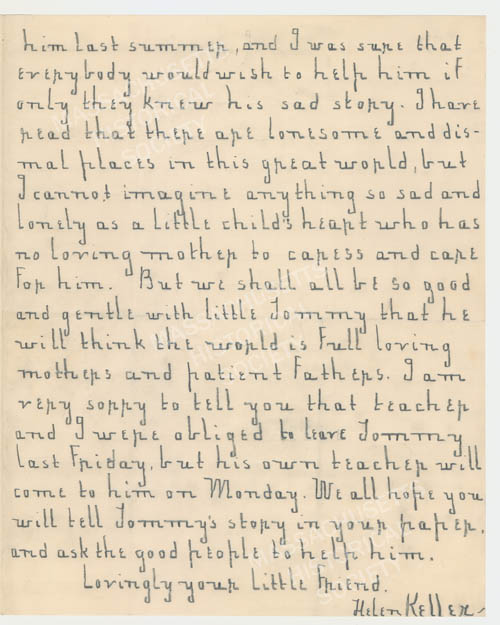 him last summer, and I was sure that
everybody would wish to help him if
only they knew his sad story. I have
read that there are lonesome and dis-
mal places in this great world, but
I cannot imagine anything so sad and
lonely as a little child's heart who has
no loving mother to caress and care
for him. But we shall all be so good
and gentle with little Tommy that he
will think the world is full loving
mothers and patient fathers. I am
very sorry to tell you that teacher
and I were obliged to leave Tommy
last Friday, but his own teacher will
come to him on Monday. We all hope you
will tell Tommy's story in your paper,
and ask the good people to help him.
Lovingly your little friend.
Helen Keller
MASSACHUSETTS
HISTORICAL
SOCIETY
MASSACHUSETTS
HISTORICAL
SOCIETY
MASSACHUSETTS
HISTORICAL
SOCIETY